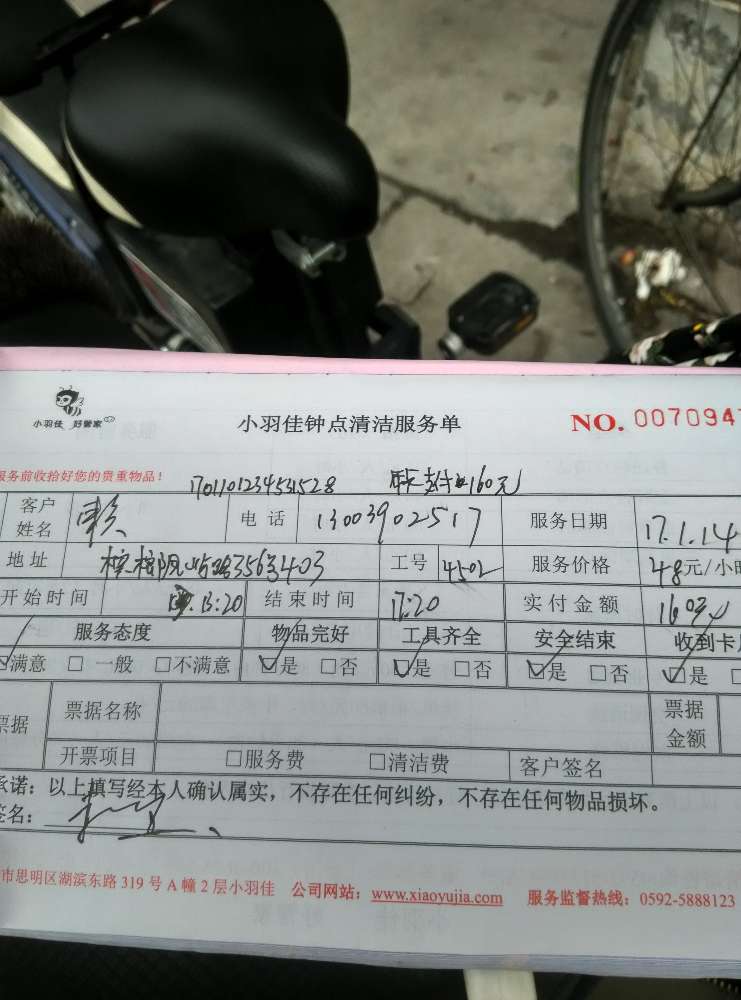 小羽佳 好管家 小羽佳钟点清洁服务单 NO. 007094
服务前收拾好您的贵重物品!
1701101234531528 卡支付160元
客户姓名 赖 电话 13003902517 服务日期 17.1.14
地址 工号 4502 服务价格 48元/小时
开始时间 13:20 结束时间 17:20 实付金额 160元
服务态度 物品完好 工具齐全 安全结束 收到卡
☑满意 □一般 □不满意 ☑是 □否 ☑是 □否 ☑是 □否 ☑是
票据 票据名称 票据金额
开票项目 □服务费 □清洁费 客户签名
承诺：以上填写经本人确认属实，不存在任何纠纷，不存在任何物品损坏。
签名：
市思明区湖滨东路 319 号 A 幢 2 层小羽佳 公司网站：www.xiaoyujia.com 服务监督热线：0592-5888123